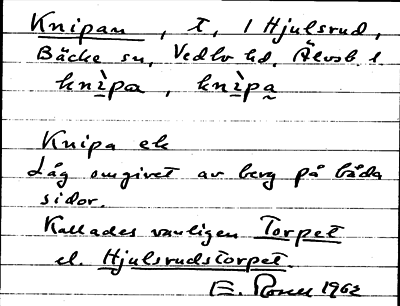 Knipan, t, i Hjulsrud,
Bäcke sn, Vedbo hd, Älvsb. l
knìpa, knìpa̰
Knipa ek
Låg omgivet av berg på båda
sidor.
Kallades vanligen Torpet
el. Hjulsrudstorpet.
E. 1962